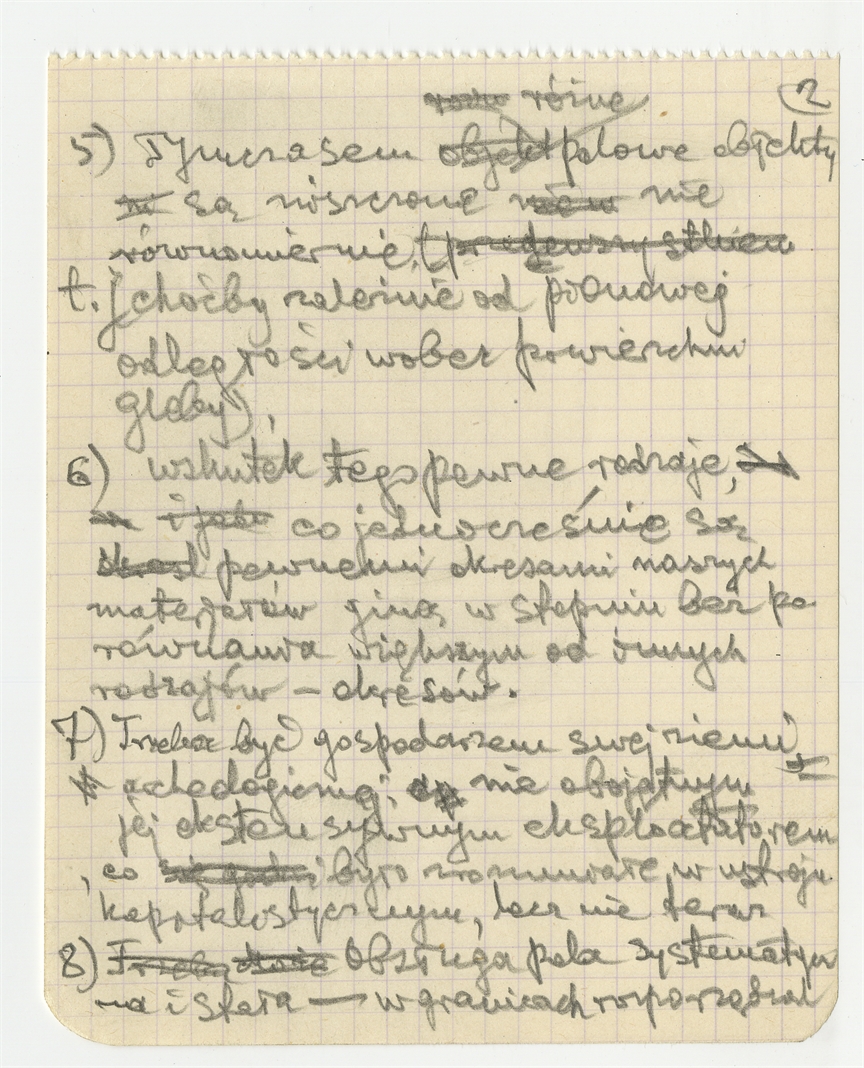 2
różne
5) Tymczasem objekt polowe objekty
są niszczone nie
równomiernie, (przedewszystkiem
t.j. choćby zależnie od pionowej
odległości wobec powierzchni
gleby),
6) wskutek tego pewne rodzaje,
i jako co jednocześnie są
okresl pewnemi okresami naszych
materjałów giną w stopniu bez po
równania większym od innych
rodzajów – okresów.
7) Trzeba być gospodarzem swej ziemi
archeologicznej, nie obojętnym
jej ekstensywnym eksploatatorem
, co było zrozumiałe w ustroju
kapitalistycznym, lecz nie teraz
8) Trzeba Obsługa pola systematycz
na i stała — w granicach rozporządzal